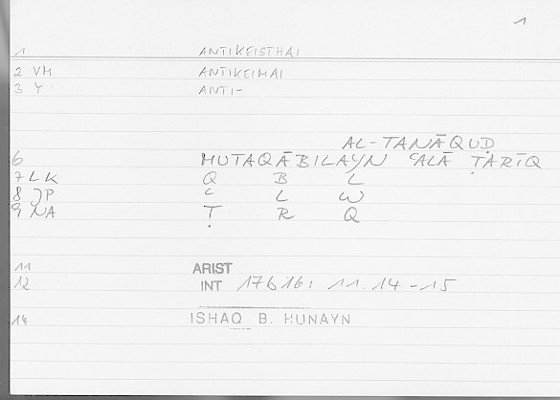 1
1 ANTIKEISTHAI
2 VM ANTIKEIMAI
3 Y ANTI-
AL-TANĀQUḌ
6 MUTAQĀBILAYN ʿALĀ ṬARĪQ
7 LK Q B L
8 JP ʿ L W
9 NA Ṭ R Q
11 ARIST
12 INT 17b16: 11.14-15
14 ISHAQ B. HUNAYN